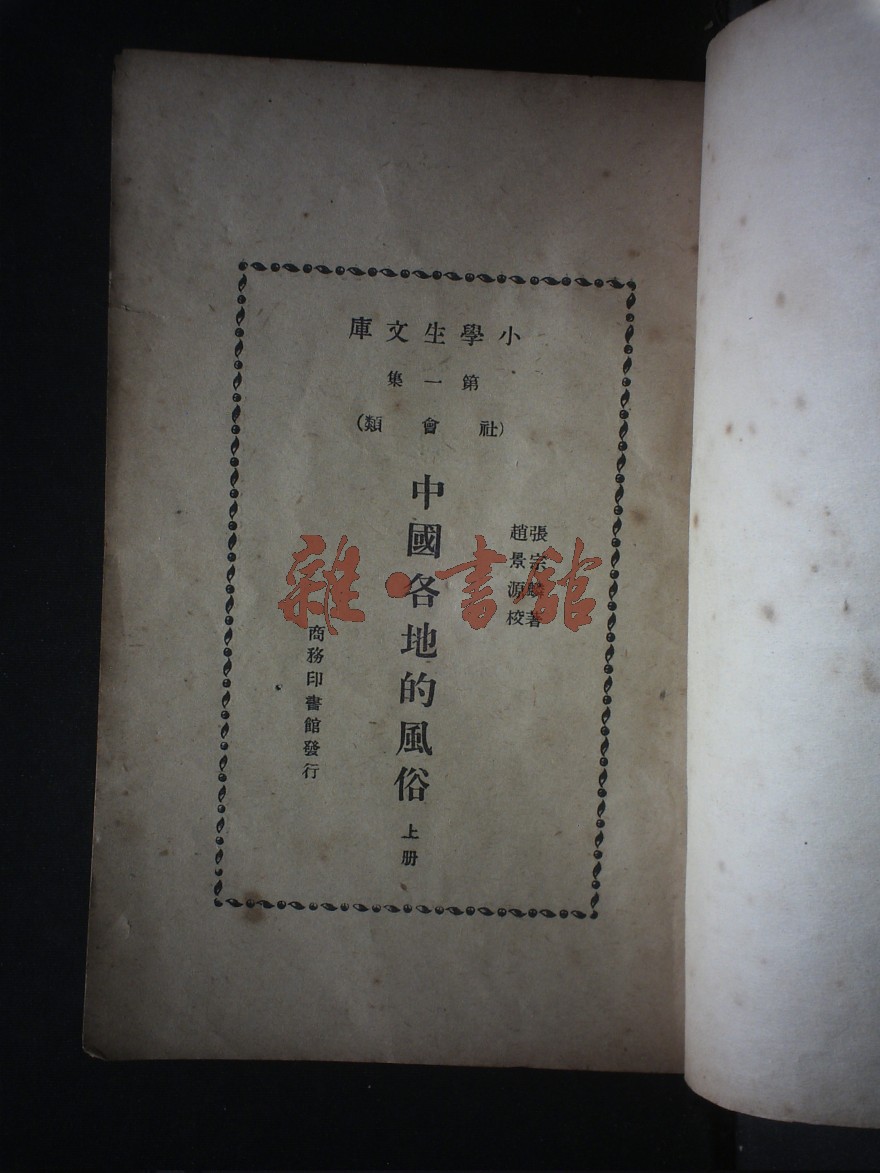 小學生文庫
第一集
(社會類)
張宗麟著
趙景源校
中國各地的風俗 上册
商務印書館發行
雜·書舘